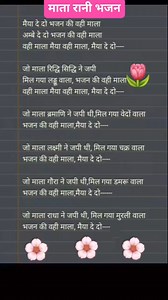 माता रानी भजन
मैया दे दो भजन की वही माला
अम्बे दे दो भजन की वही माला
वही माला मैया वही माला, मैया दे दो----
जो माला रिद्धि सिद्धि ने जपी
मिल गया लड्डू वाला, भजन की वही माला
वही माला मैया वही माला, मैया दे दो---
जो माला ब्रमाणि ने जपी थी,मिल गया वेदों वाला
भजन की वही माला, मैया दे दो---
जो माला लक्ष्मी ने जपी थी, मिल गया चक्र वाला
भजन की वही माला, मैया दे दो---
जो माला गौरा ने जपी थी,मिल गया डमरू वाला
भजन की वही माला,मैया दे दो----
जो माला राधा ने जपी थी,मिल गया मुरली वाला
भजन की वही माला,मैया दे दो---